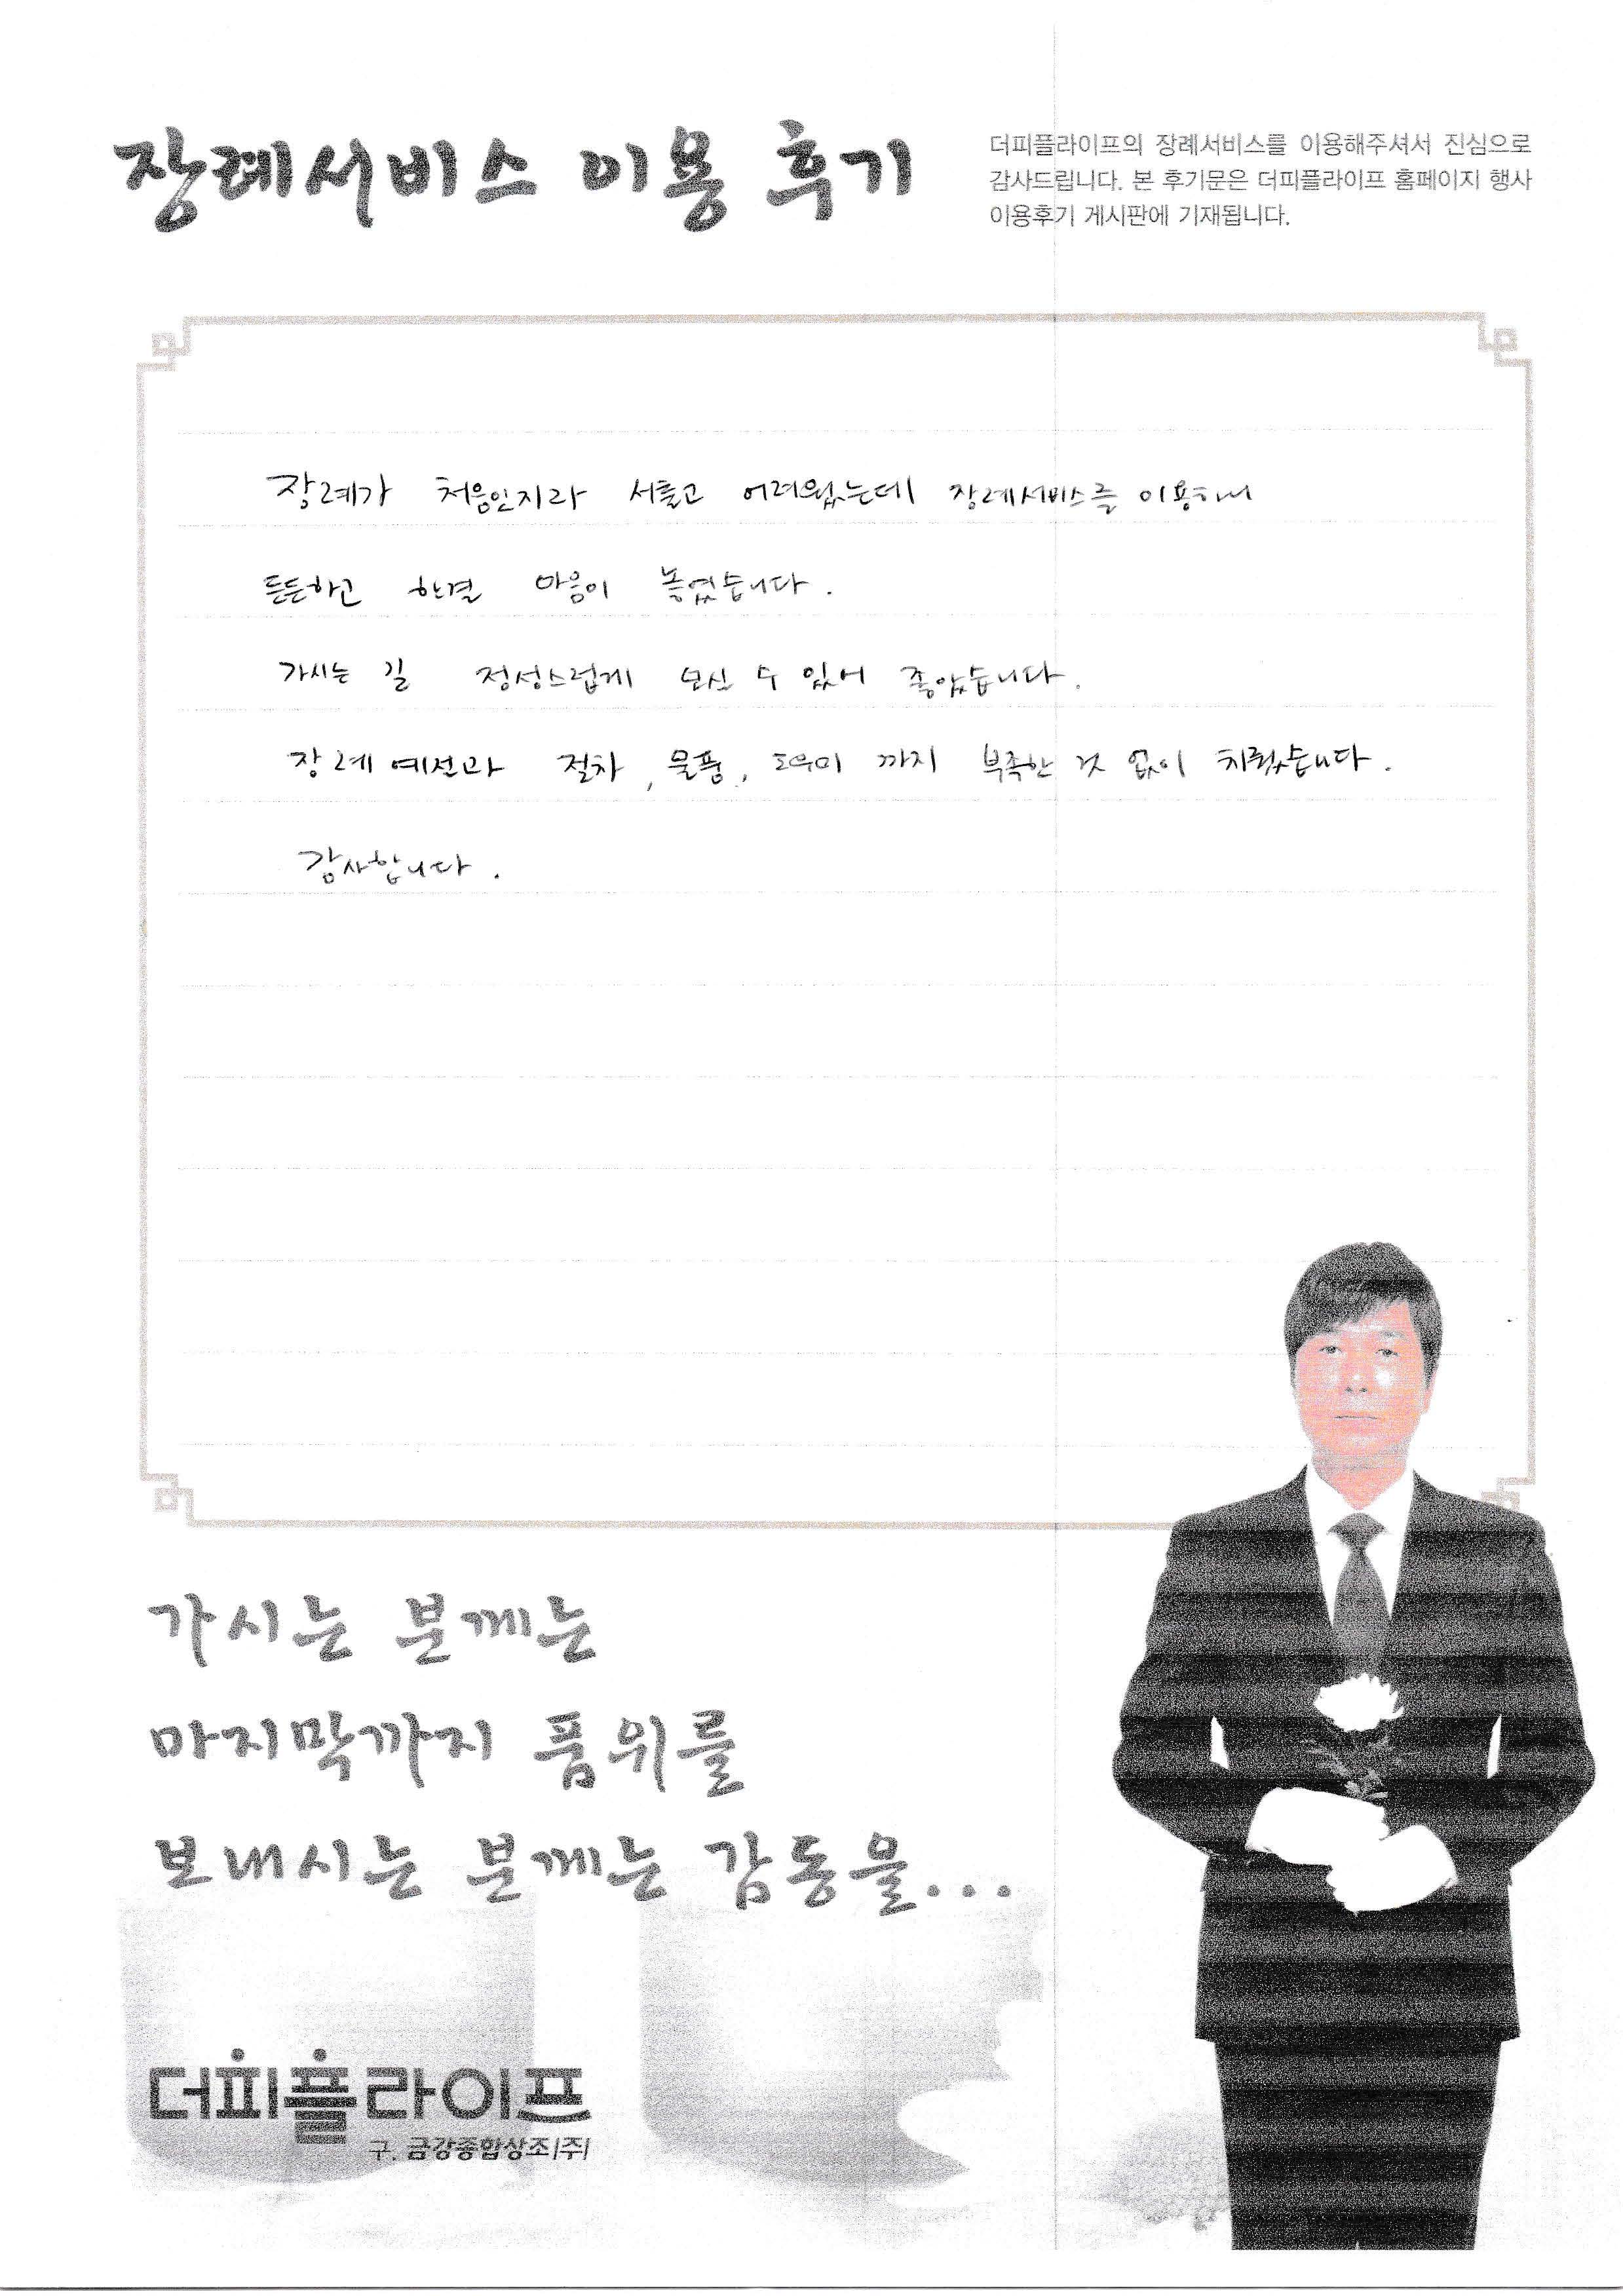 장례서비스 이용 후기
더피플라이프의 장례서비스를 이용해주셔서 진심으로
감사드립니다. 본 후기문은 더피플라이프 홈페이지 행사
이용후기 게시판에 기재됩니다.
장례가 처음인지라 서툴고 어려웠는데 장례서비스를 이용하니
든든하고 한결 마음이 놓였습니다.
가시는 길 정성스럽게 모실 수 있어 좋았습니다.
장례 예선과 절차, 물품, 도우미 까지 부족한 것 없이 치뤘습니다.
감사합니다.
가시는 분께는
마지막까지 품위를
보내시는 분께는 감동을...
더피플라이프
구. 금강종합상조(주)